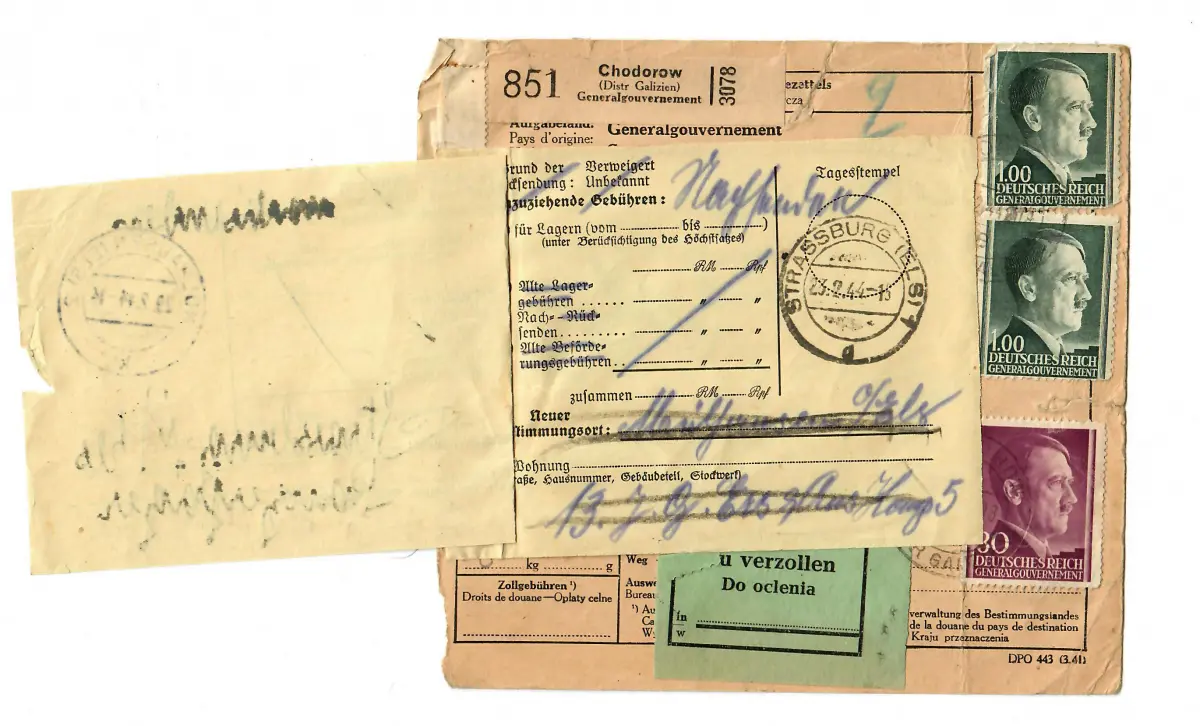 851
Chodorow
(Distr Galizien)
Generalgouvernement
3078
ezettels
cza
Aufgabeland:
Pays d'origine:
Generalgouvernement
2
1.00
DEUTSCHES REICH
GENERALGOUVERNEMENT
1.00
DEUTSCHES REICH
GENERALGOUVERNEMENT
30
DEUTSCHES REICH
GENERALGOUVERNEMENT
rund der Verweigert
cksendung: Unbekannt
Nachsenden
Tagesstempel
nzuziehende Gebühren:
für Lagern (vom bis )
(unter Berücksichtigung des Höchstsatzes)
STRASSBURG (ELS) 1
23.2.44.-13
d
RM Rpf
Alte Lager-
gebühren " "
Nach- Rück-
senden " "
Alte Beförde-
rungsgebühren " "
zusammen RM Rpf
Neuer
stimmungsort: Mülhausen Els
Wohnung
aße, Hausnummer, Gebäudeteil, Stockwerk)
kg g
Weg
Zollgebühren ¹)
Droits de douane—Opłaty celne
Auswe
Bureau
¹) Au
Ca
W
u verzollen
Do oclenia
in
w
verwaltung des Bestimmungslandes
de la douane du pays de destination
Kraju przeznaczenia
DPO 443 (3.41)